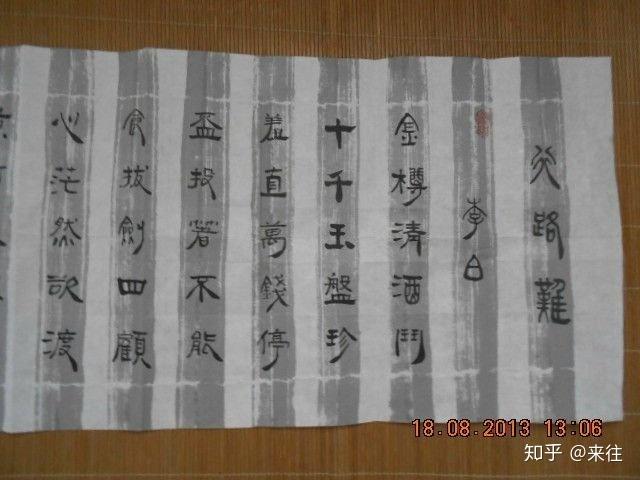 行路難
李白
金樽清酒鬥
十千玉盤珍
羞直萬錢停
盃投箸不能
食拔劍四顧
心茫然欲渡
18.08.2013 13:06
知乎 @来往